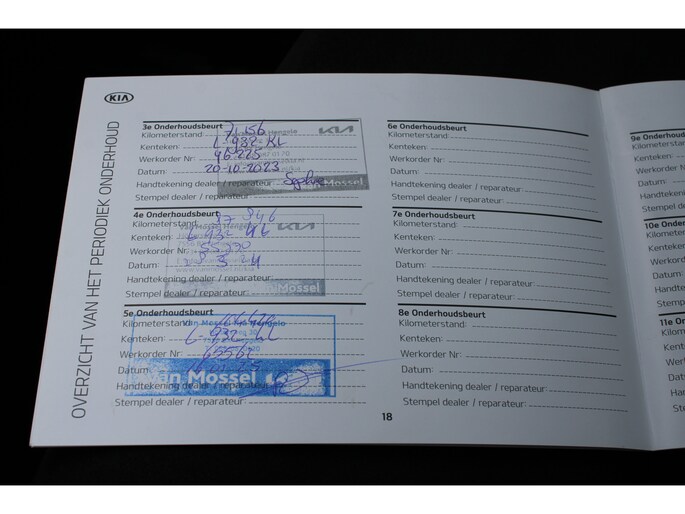 KIA
OVERZICHT VAN HET PERIODIEK ONDERHOUD
3e Onderhoudsbeurt
Kilometerstand: 71.156
Kenteken: L-932-KL
Werkorder Nr: 96.225
Datum: 20-10-2023
Handtekening dealer / reparateur:
Stempel dealer / reparateur:
Hengelo
KIA
Mossel
4e Onderhoudsbeurt
Kilometerstand:
Kenteken:
Werkorder Nr: 55330
Datum:
Handtekening dealer / reparateur:
Stempel dealer / reparateur:
Van Mossel Hengelo
KIA
Van Mossel
5e Onderhoudsbeurt
Kilometerstand:
Kenteken: L-932-KL
Werkorder Nr: 65562
Datum:
Handtekening dealer / reparateur:
Stempel dealer / reparateur:
Van Mossel Kia Hengelo
Van Mossel
6e Onderhoudsbeurt
Kilometerstand:
Kenteken:
Werkorder Nr:
Datum:
Handtekening dealer / reparateur:
Stempel dealer / reparateur:
7e Onderhoudsbeurt
Kilometerstand:
Kenteken:
Werkorder Nr:
Datum:
Handtekening dealer / reparateur:
Stempel dealer / reparateur:
8e Onderhoudsbeurt
Kilometerstand:
Kenteken:
Werkorder Nr:
Datum:
Handtekening dealer / reparateur:
Stempel dealer / reparateur:
18
9e Onderh
Kilometerstan
Kenteken:
Werkorder
Datum:
Handteke
Stempel d
10e Onder
Kilometer
Kenteken
Werkord
Datum:
Handtek
Stempe
11e On
Kilome
Kentek
Werko
Datum
Handt
Stem